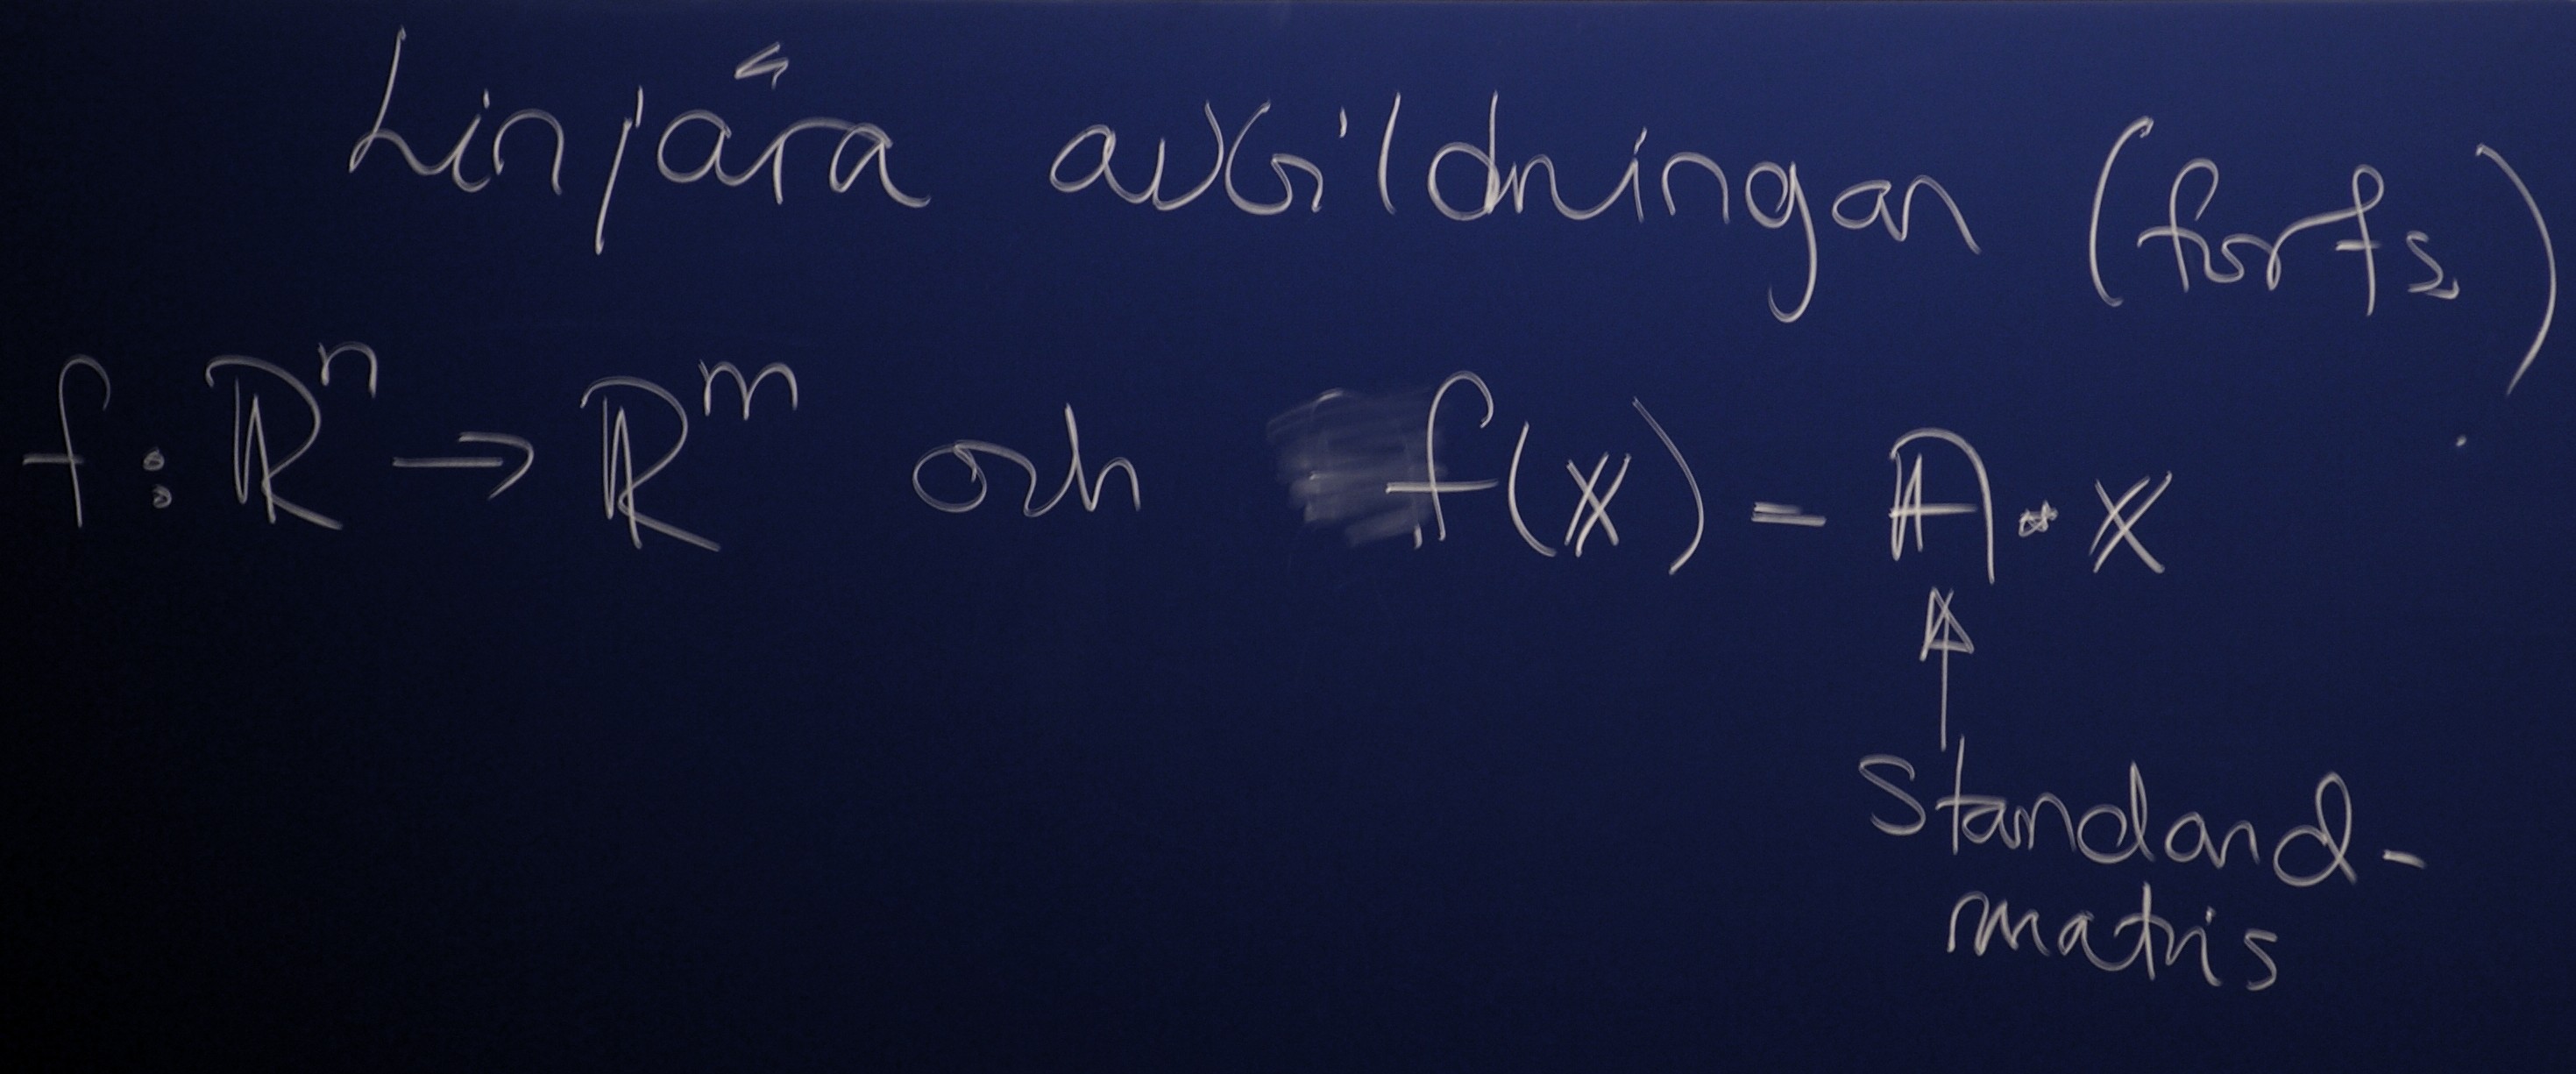 Linjära avbildningar (forts.)
f: ℝⁿ → ℝᵐ och f(𝕩) = 𝔸 · 𝕩
Standard-
matris